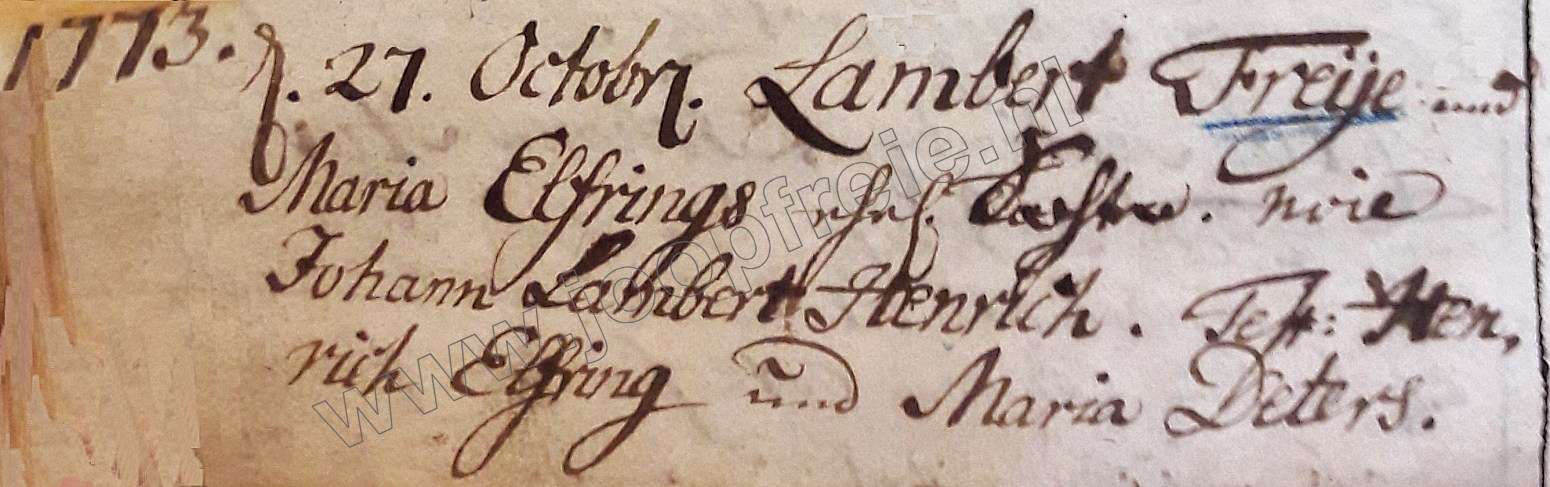 1773. d. 27. Octobr. Lambert Freije und
Maria Elfrings ehel. noie
Johann Lambert Henrich. Test: Hen,
rich Elfring und Maria Deters.
www.joopfreie.nl